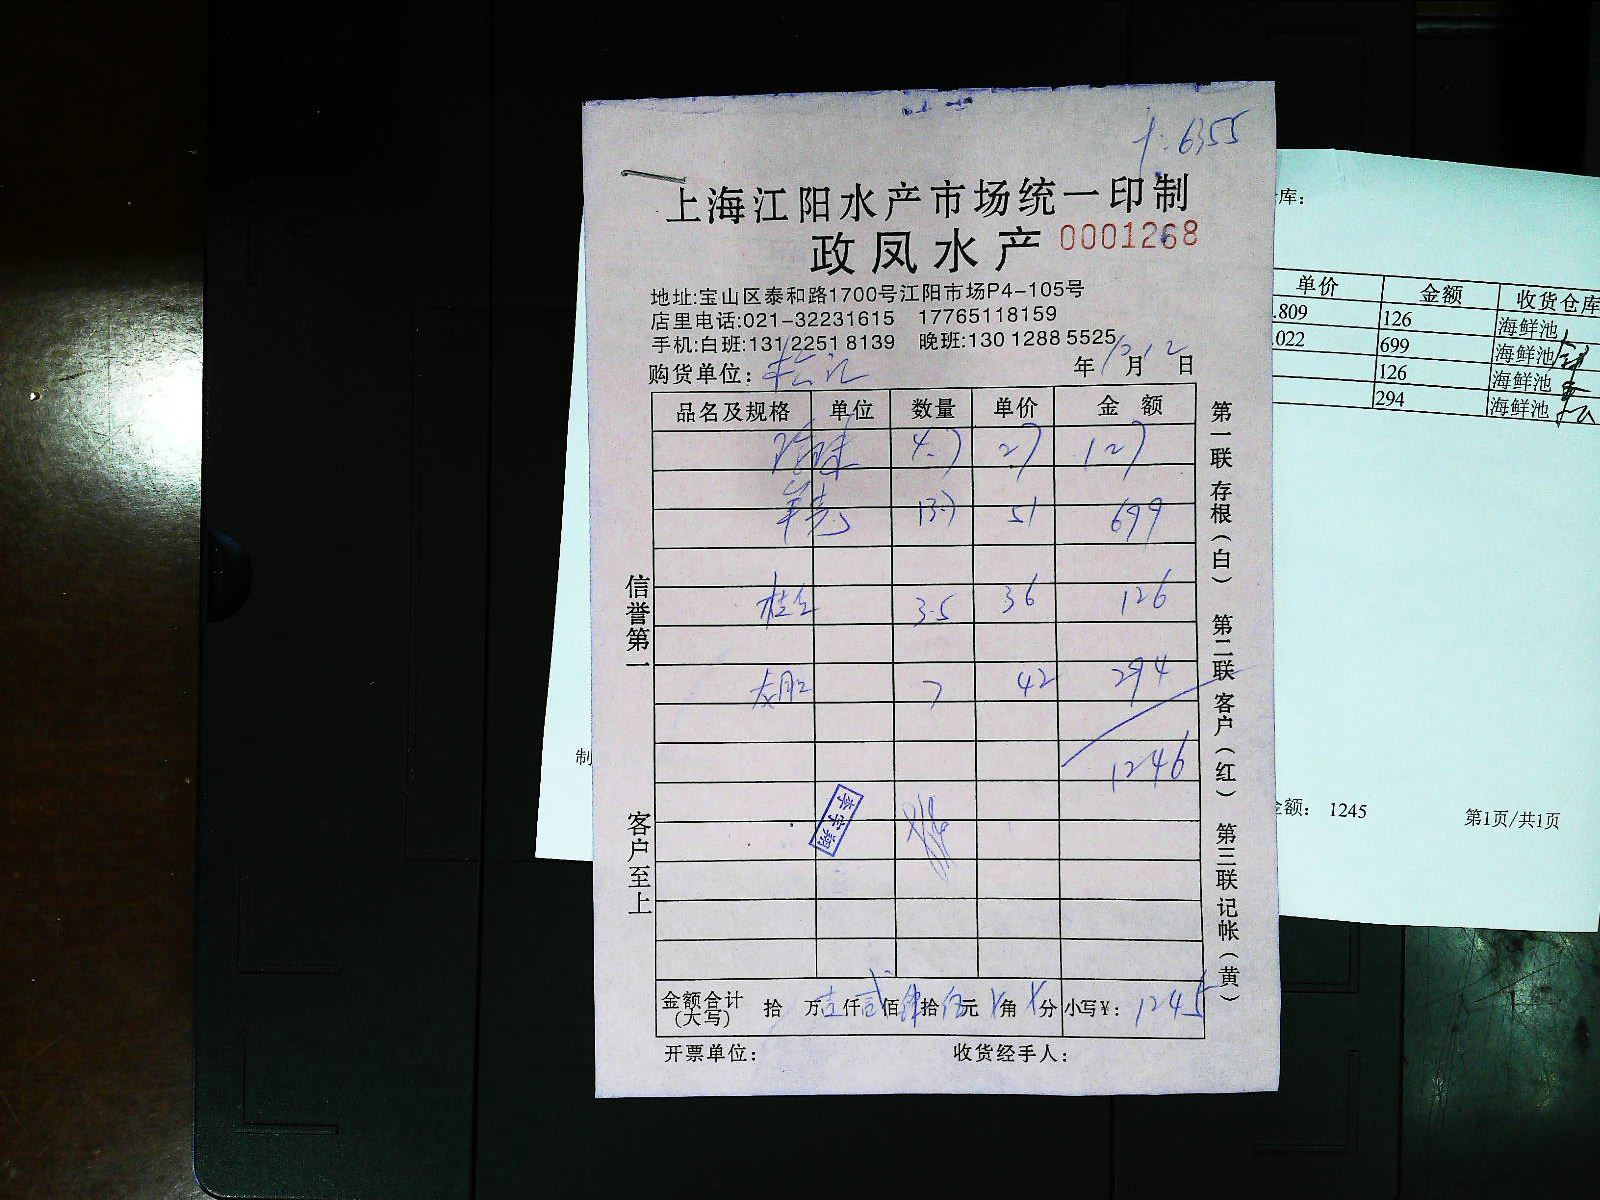 6355
上海江阳水产市场统一印制
政凤水产 0001268
地址:宝山区泰和路1700号江阳市场P4-105号
店里电话:021-32231615 17765118159
手机:白班:131 2251 8139 晚班:130 1288 5525
购货单位: 年12月12日
品名及规格 单位 数量 单价 金额
4.7 27 127
13.7 51 699
桂 3.5 36 126
7 42 294
1246
李宇翔
金额合计(大写) 拾 万壹仟贰佰肆拾伍元 角 分 小写¥: 1245
开票单位: 收货经手人:
信誉第一 客户至上
第一联存根(白) 第二联客户(红) 第三联记帐(黄)
库:
单价 金额 收货仓库
.809 126 海鲜池
.022 699 海鲜池
126 海鲜池
294 海鲜池
制
金额: 1245 第1页/共1页